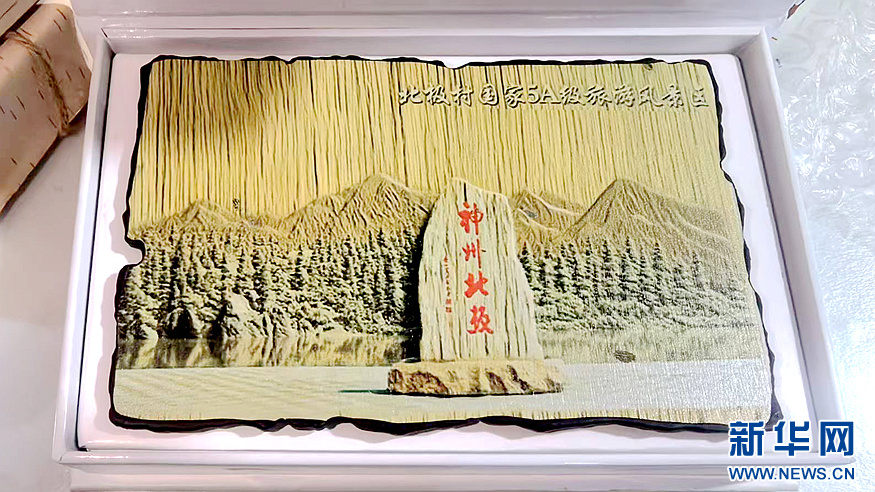 北极村国家5A级旅游风景区
神州北极
新华网
WWW.NEWS.CN